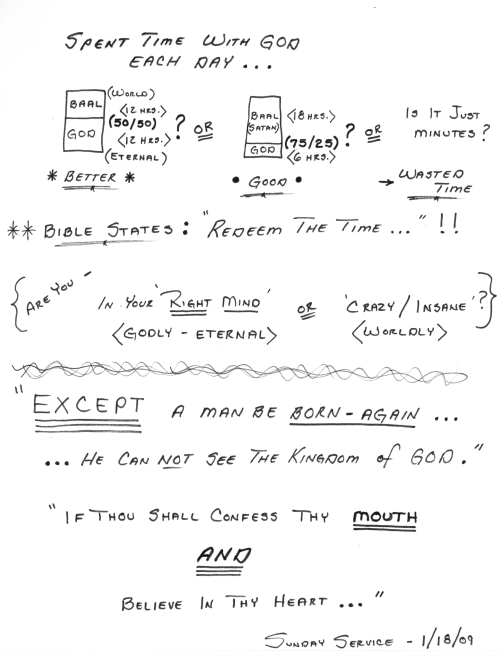 SPENT TIME WITH GOD
EACH DAY ...
BAAL
GOD
(WORLD)
<12 HRS.>
(50/50)
<12 HRS.>
(ETERNAL)
? OR
BAAL
(SATAN)
GOD
<18 HRS.>
(75/25)
<6 HRS.>
? OR
IS IT JUST
MINUTES?
* BETTER *
• GOOD •
→ WASTED
TIME
** BIBLE STATES : "REDEEM THE TIME ..." !!
{ARE YOU - IN YOUR 'RIGHT MIND' OR 'CRAZY / INSANE'?}
<GODLY - ETERNAL> <WORLDLY>
"EXCEPT A MAN BE BORN-AGAIN ...
... HE CAN NOT SEE THE KINGDOM of GOD."
"IF THOU SHALL CONFESS THY MOUTH
AND
BELIEVE IN THY HEART ..."
SUNDAY SERVICE - 1/18/09